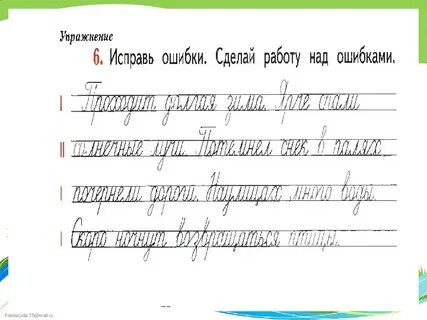 Упражнение
6. Исправь ошибки. Сделай работу над ошибками.
I Проходит долгая зима. Ярче стали
II солнечные лучи. Потемнел снек в палях,
I почернели дороги. Наулицах много воды.
I Скоро ночнут возвращаться птицы.